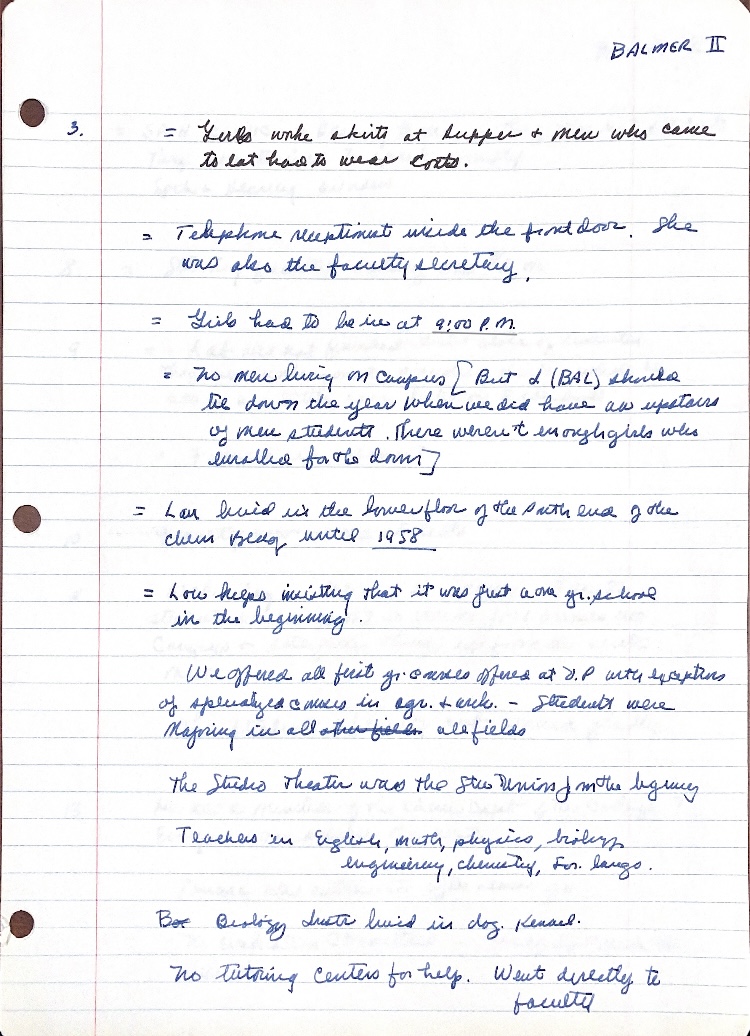 BALMER II
3. = Girls wore skirts at supper + men who came
to eat had to wear coats.
= Telephone receptionist inside the front door. She
was also the faculty secretary.
= Girls had to be in at 9:00 P.M.
= No men living on campus [But I (BAL) should
tie down the year when we did have an upstairs
of men students. There weren't enough girls who
enrolled for the dorm]
= Lou lived in the lower floor of the south end of the
Chem Bldg until 1958
= Lou keeps insisting that it was just a one yr. school
in the beginning.
We offered all first yr. courses offered at U.P with exceptions
of specialized courses in agr. + arch. - Students were
Majoring in all other fields all fields
The Studio Theater was the Stu Union from the beginning
Teachers in English, math, physics, biology,
engineering, chemistry, For. langs.
Biology Instr lived in dog. Kennel.
No tutoring centers for help. Went directly to
faculty